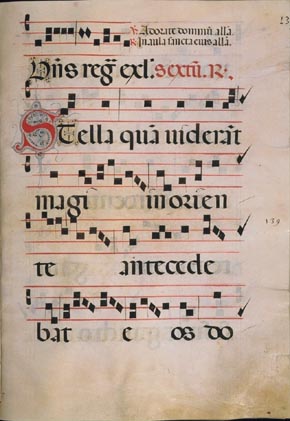 ℣. Adorate dominū allā.
℟. In aula sancta eius allā.
Dn̄s reg̅ exl. sextū. ℟.
Stella quā uiderāt
magi in orien
te antecede
bat e os do
139